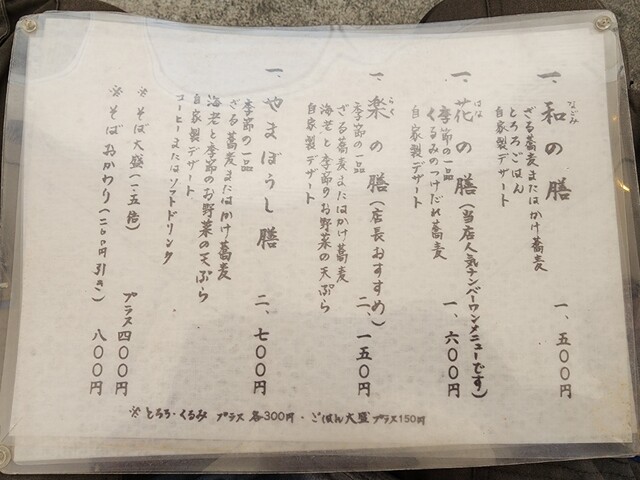 一、和の膳 一、五〇〇円
なごみ
ざる蕎麦またはかけ蕎麦
とろろごはん
自家製デザート
一、花の膳(当店人気ナンバーワンメニューです) 一、六〇〇円
はな
季節の一品
くるみのつけだれ蕎麦
自家製デザート
一、楽の膳(店長おすすめ) 二、一五〇円
らく
季節の一品
ざる蕎麦またはかけ蕎麦
海老と季節のお野菜の天ぷら
自家製デザート
一、やまぼうし膳 二、七〇〇円
季節の一品
ざる蕎麦またはかけ蕎麦
海老と季節のお野菜の天ぷら
自家製デザート
コーヒーまたはソフトドリンク
※そば大盛(一・五倍) プラス四〇〇円
※そばおかわり(二〇〇円引き) 八〇〇円
※とろろ・くるみ プラス 各300円・ごはん大盛 プラス150円